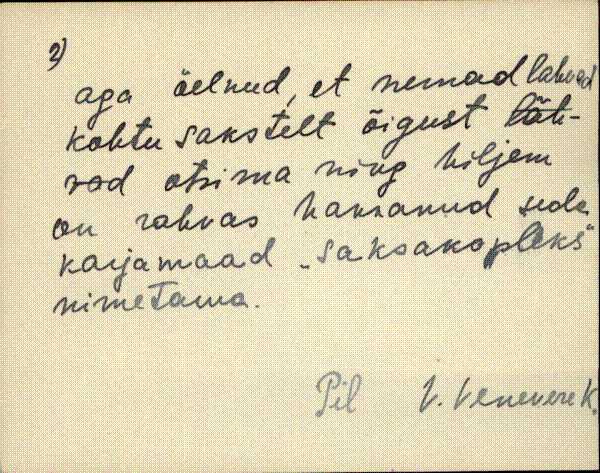 2)
aga öelnud, et nemad lähvad
kohtu sakstelt õigust läh-
vad otsima ning hiljem
on rahvas hakkanud seda
karjamaad „saksakopleks"
nimetama.
Pil V. Venevere K.